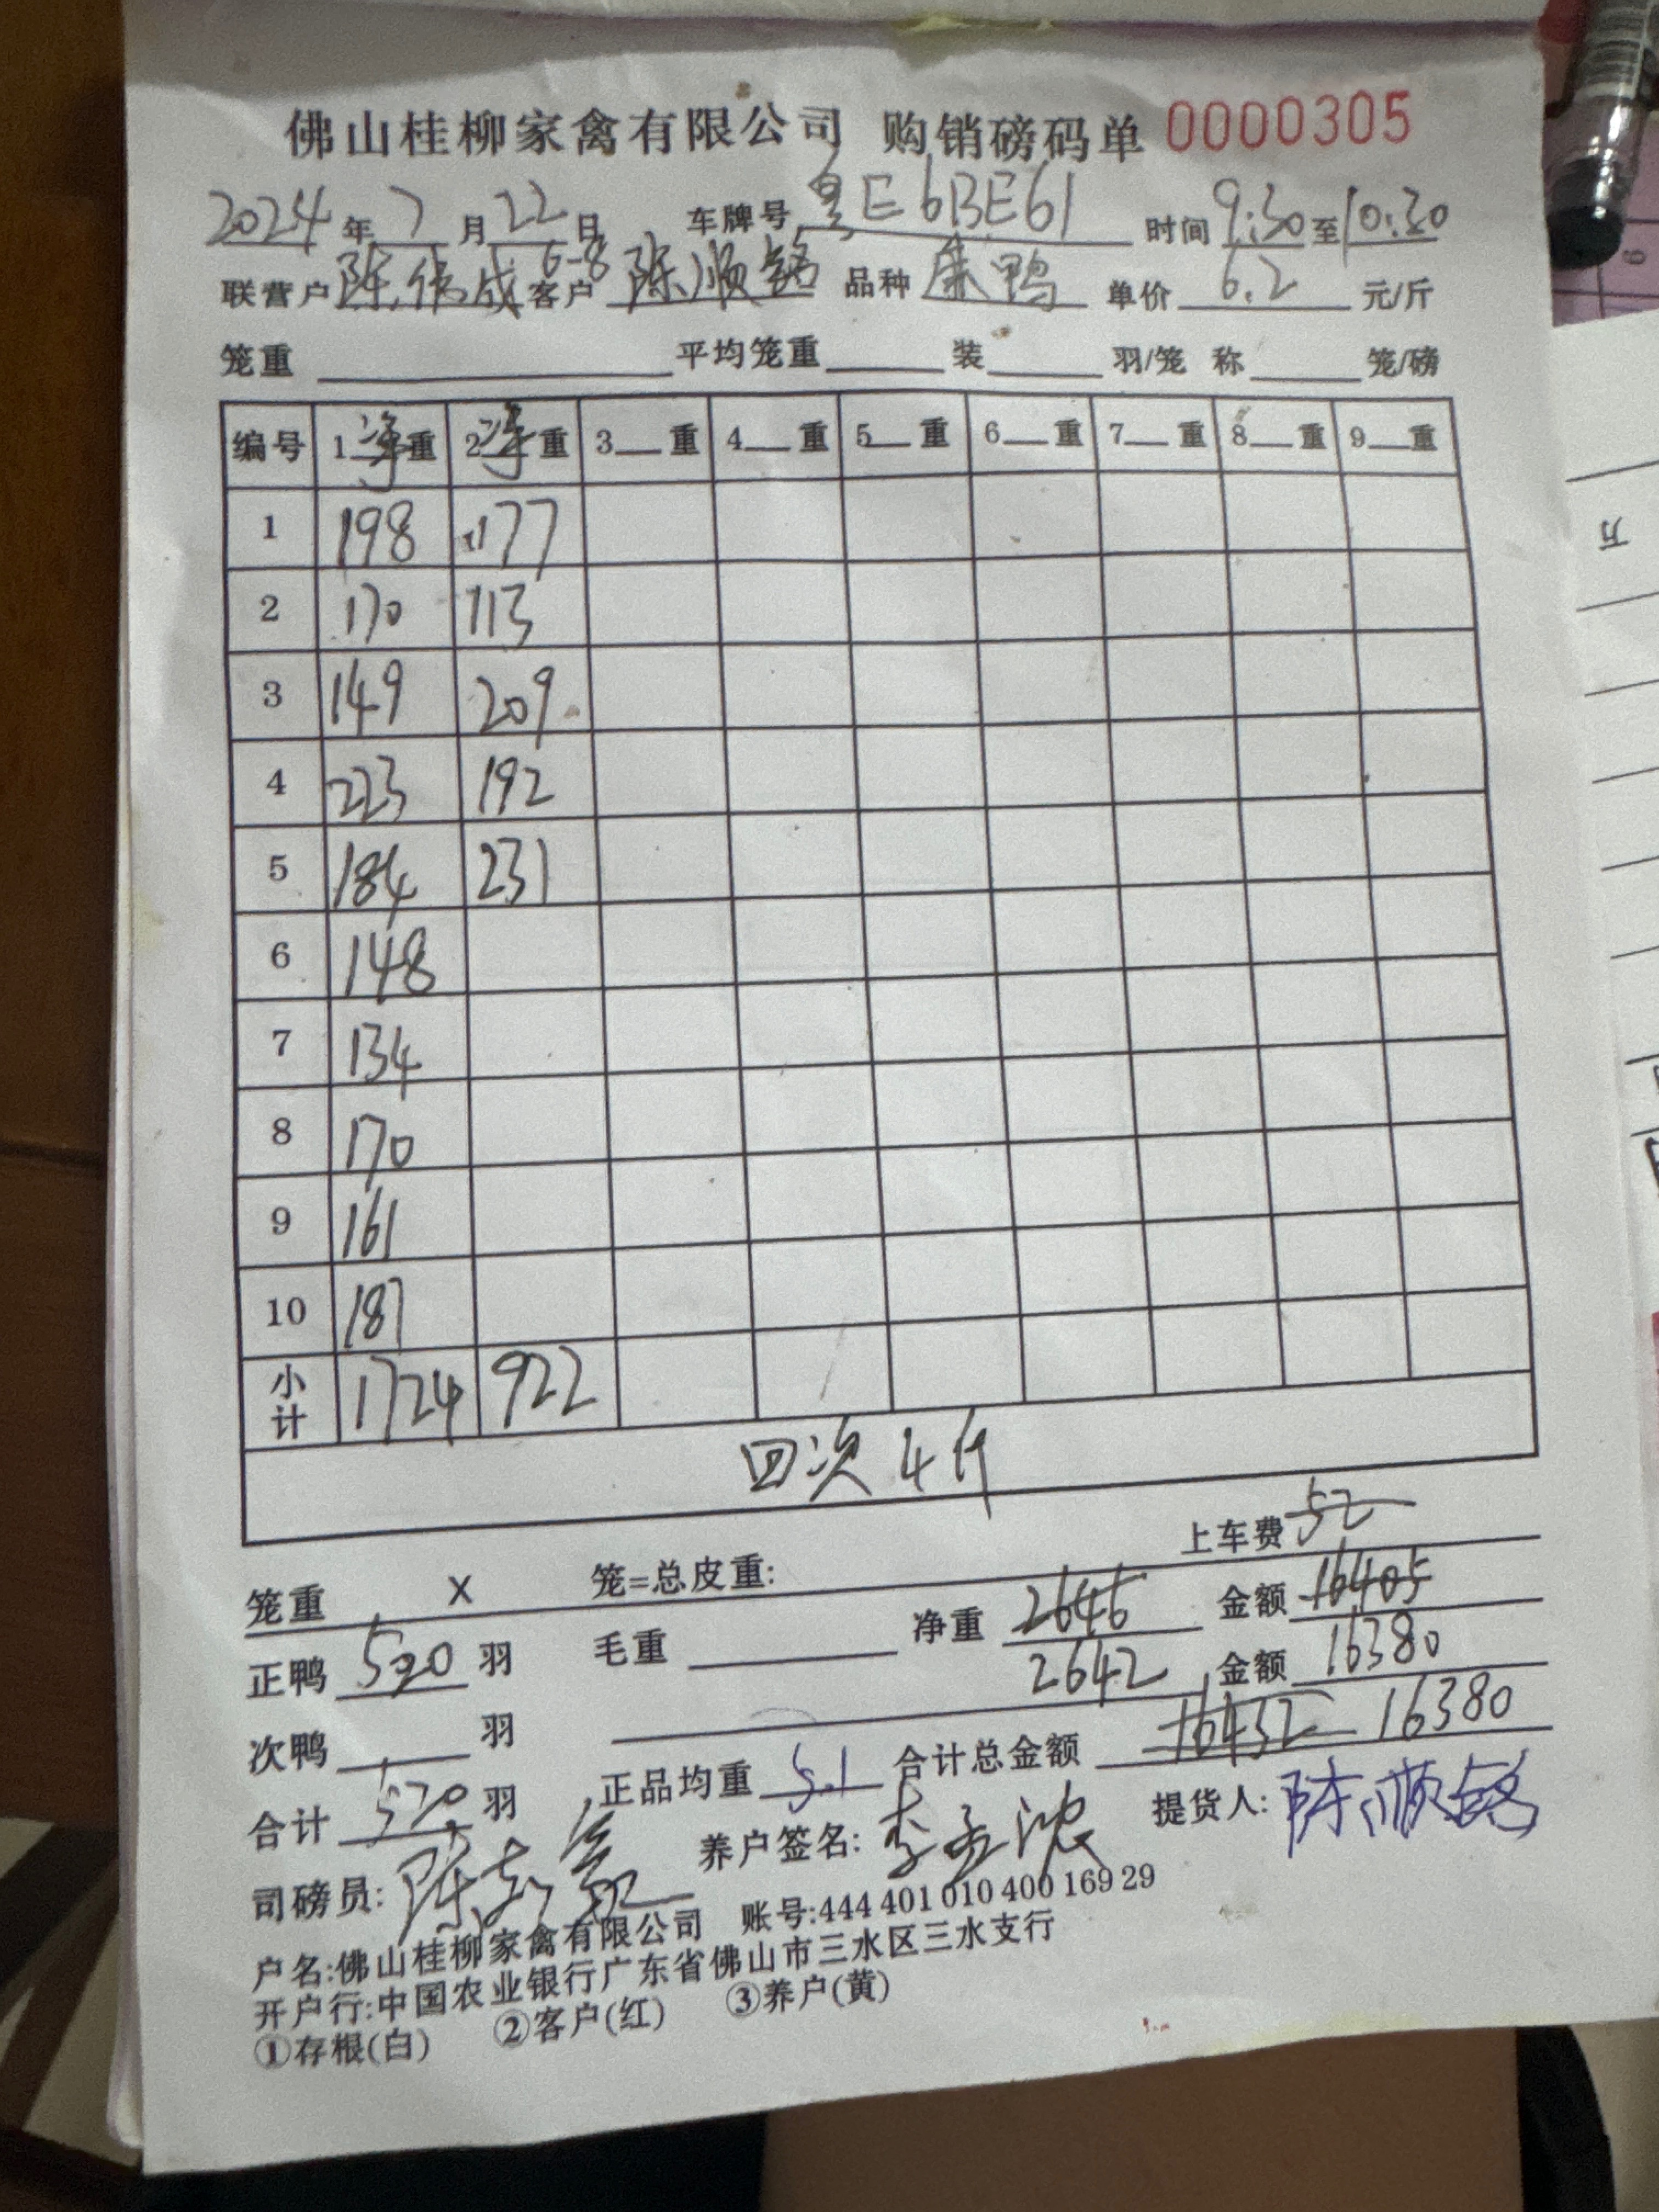 佛山桂柳家禽有限公司 购销磅码单 0000305
2024年7月22日 车牌号 E6BE61 时间9:30至10:30
6-8
联营户 陈伟成 客户 陈顺铭 品种 鸭 单价 6.2 元/斤
笼重 平均笼重 装 羽/笼 称 笼/磅
编号 1净重 2净重 3重 4重 5重 6重 7重 8重 9重
1 198 177
2 170 113
3 149 209
4 223 192
5 184 231
6 148
7 134
8 170
9 161
10 187
小计 1724 922
四次4斤
上车费 52
笼重 X 笼=总皮重:
正鸭 520 羽 毛重 净重 2646 金额 16405
2642 金额 16380
次鸭 羽
合计 520 羽 正品均重 5.1 合计总金额 16432 16380
司磅员: 陈 养户签名: 李 提货人: 陈顺铭
户名:佛山桂柳家禽有限公司 账号:444 401 010 400 169 29
开户行:中国农业银行广东省佛山市三水区三水支行
①存根(白) ②客户(红) ③养户(黄)